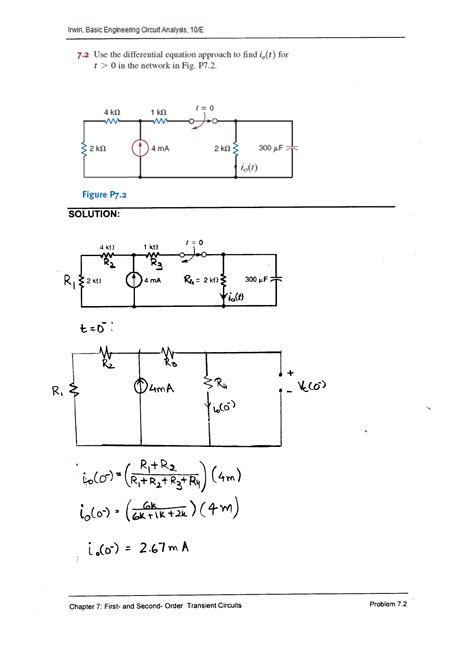 Irwin, Basic Engineering Circuit Analysis, 10/E
7.2 Use the differential equation approach to find i_o(t) for
t > 0 in the network in Fig. P7.2.
4 kΩ 1 kΩ t = 0
2 kΩ 4 mA 2 kΩ 300 μF
i_o(t)
Figure P7.2
SOLUTION:
4 kΩ 1 kΩ t = 0
R₂ R₃
R₁ 2 kΩ 4 mA R₄ = 2 kΩ 300 μF
i_o(t)
t=0⁻:
R₂ R₃
R₁ 4mA R₄ + - V_c(0⁻)
i_o(0⁻)
i_o(0⁻) = ( R₁+R₂ / R₁+R₂+R₃+R₄ ) (4m)
i_o(0⁻) = ( 6k / 6k+1k+2k ) (4m)
i_o(0⁻) = 2.67 mA
Chapter 7: First- and Second- Order Transient Circuits Problem 7.2